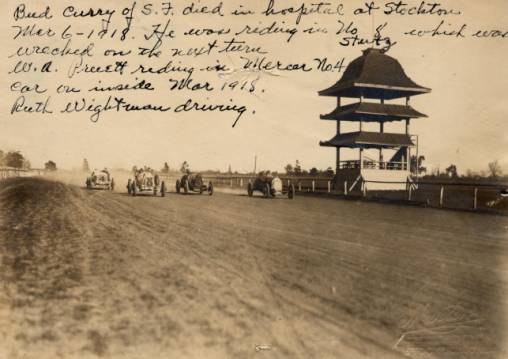 Bud Curry of S.F. died in hospital at Stockton
Mar 6-1918. He was riding in No 8 which was
Stutz
wrecked on the next turn
W.A. Pruett riding in Mercer No 4
car on inside Mar 1918.
Ruth Wightman driving.